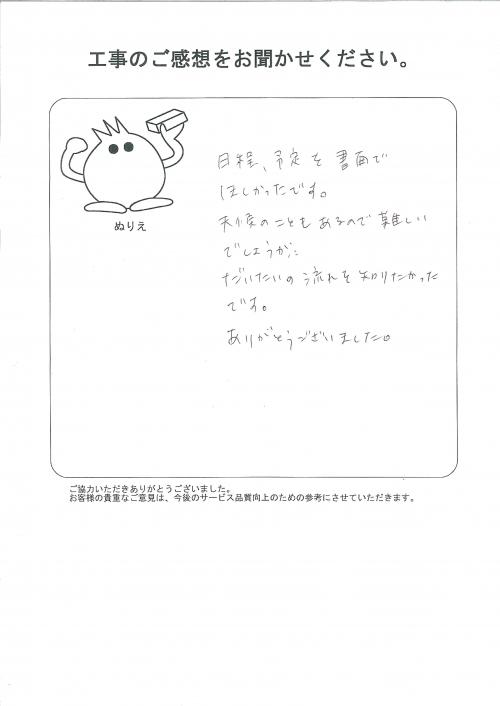 工事のご感想をお聞かせください。
ぬりえ
日程、予定を書面で
ほしかったです。
天候のこともあるので難しい
でしょうが…
だいたいの流れを知りたかった
です。
ありがとうございました。
ご協力いただきありがとうございました。
お客様の貴重なご意見は、今後のサービス品質向上のための参考にさせていただきます。